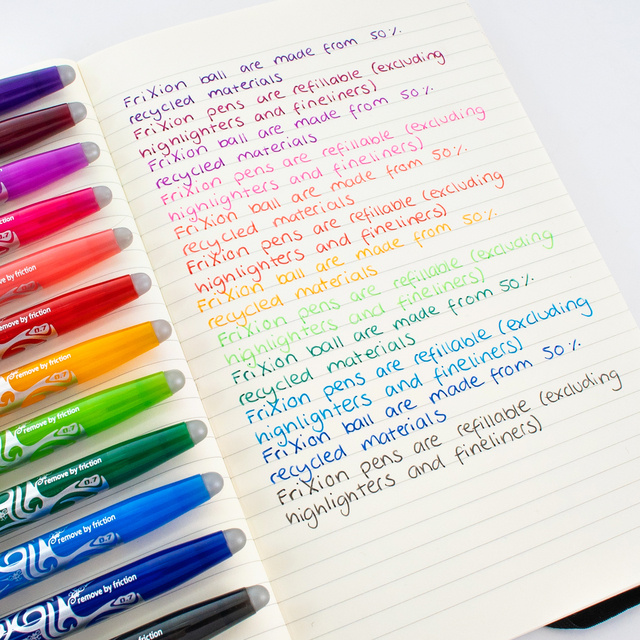 FriXion ball are made from 50%
recycled materials
FriXion pens are refillable (excluding
highlighters and fineliners)
FriXion ball are made from 50%
recycled materials
FriXion pens are refillable (excluding
highlighters and fineliners)
FriXion ball are made from 50%
recycled materials
FriXion pens are refillable (excluding
highlighters and fineliners)
FriXion ball are made from 50%
recycled materials
FriXion pens are refillable (excluding
highlighters and fineliners)
FriXion ball are made from 50%
recycled materials
FriXion pens are refillable (excluding
highlighters and fineliners)
FriXion ball are made from 50%
recycled materials
FriXion pens are refillable (excluding
highlighters and fineliners)
friction
by friction
remove by friction
0.7
remove by friction
remove by friction
0.7
remove by friction
0.7
remove by friction
0.7
remove by friction
0.7
remove by friction